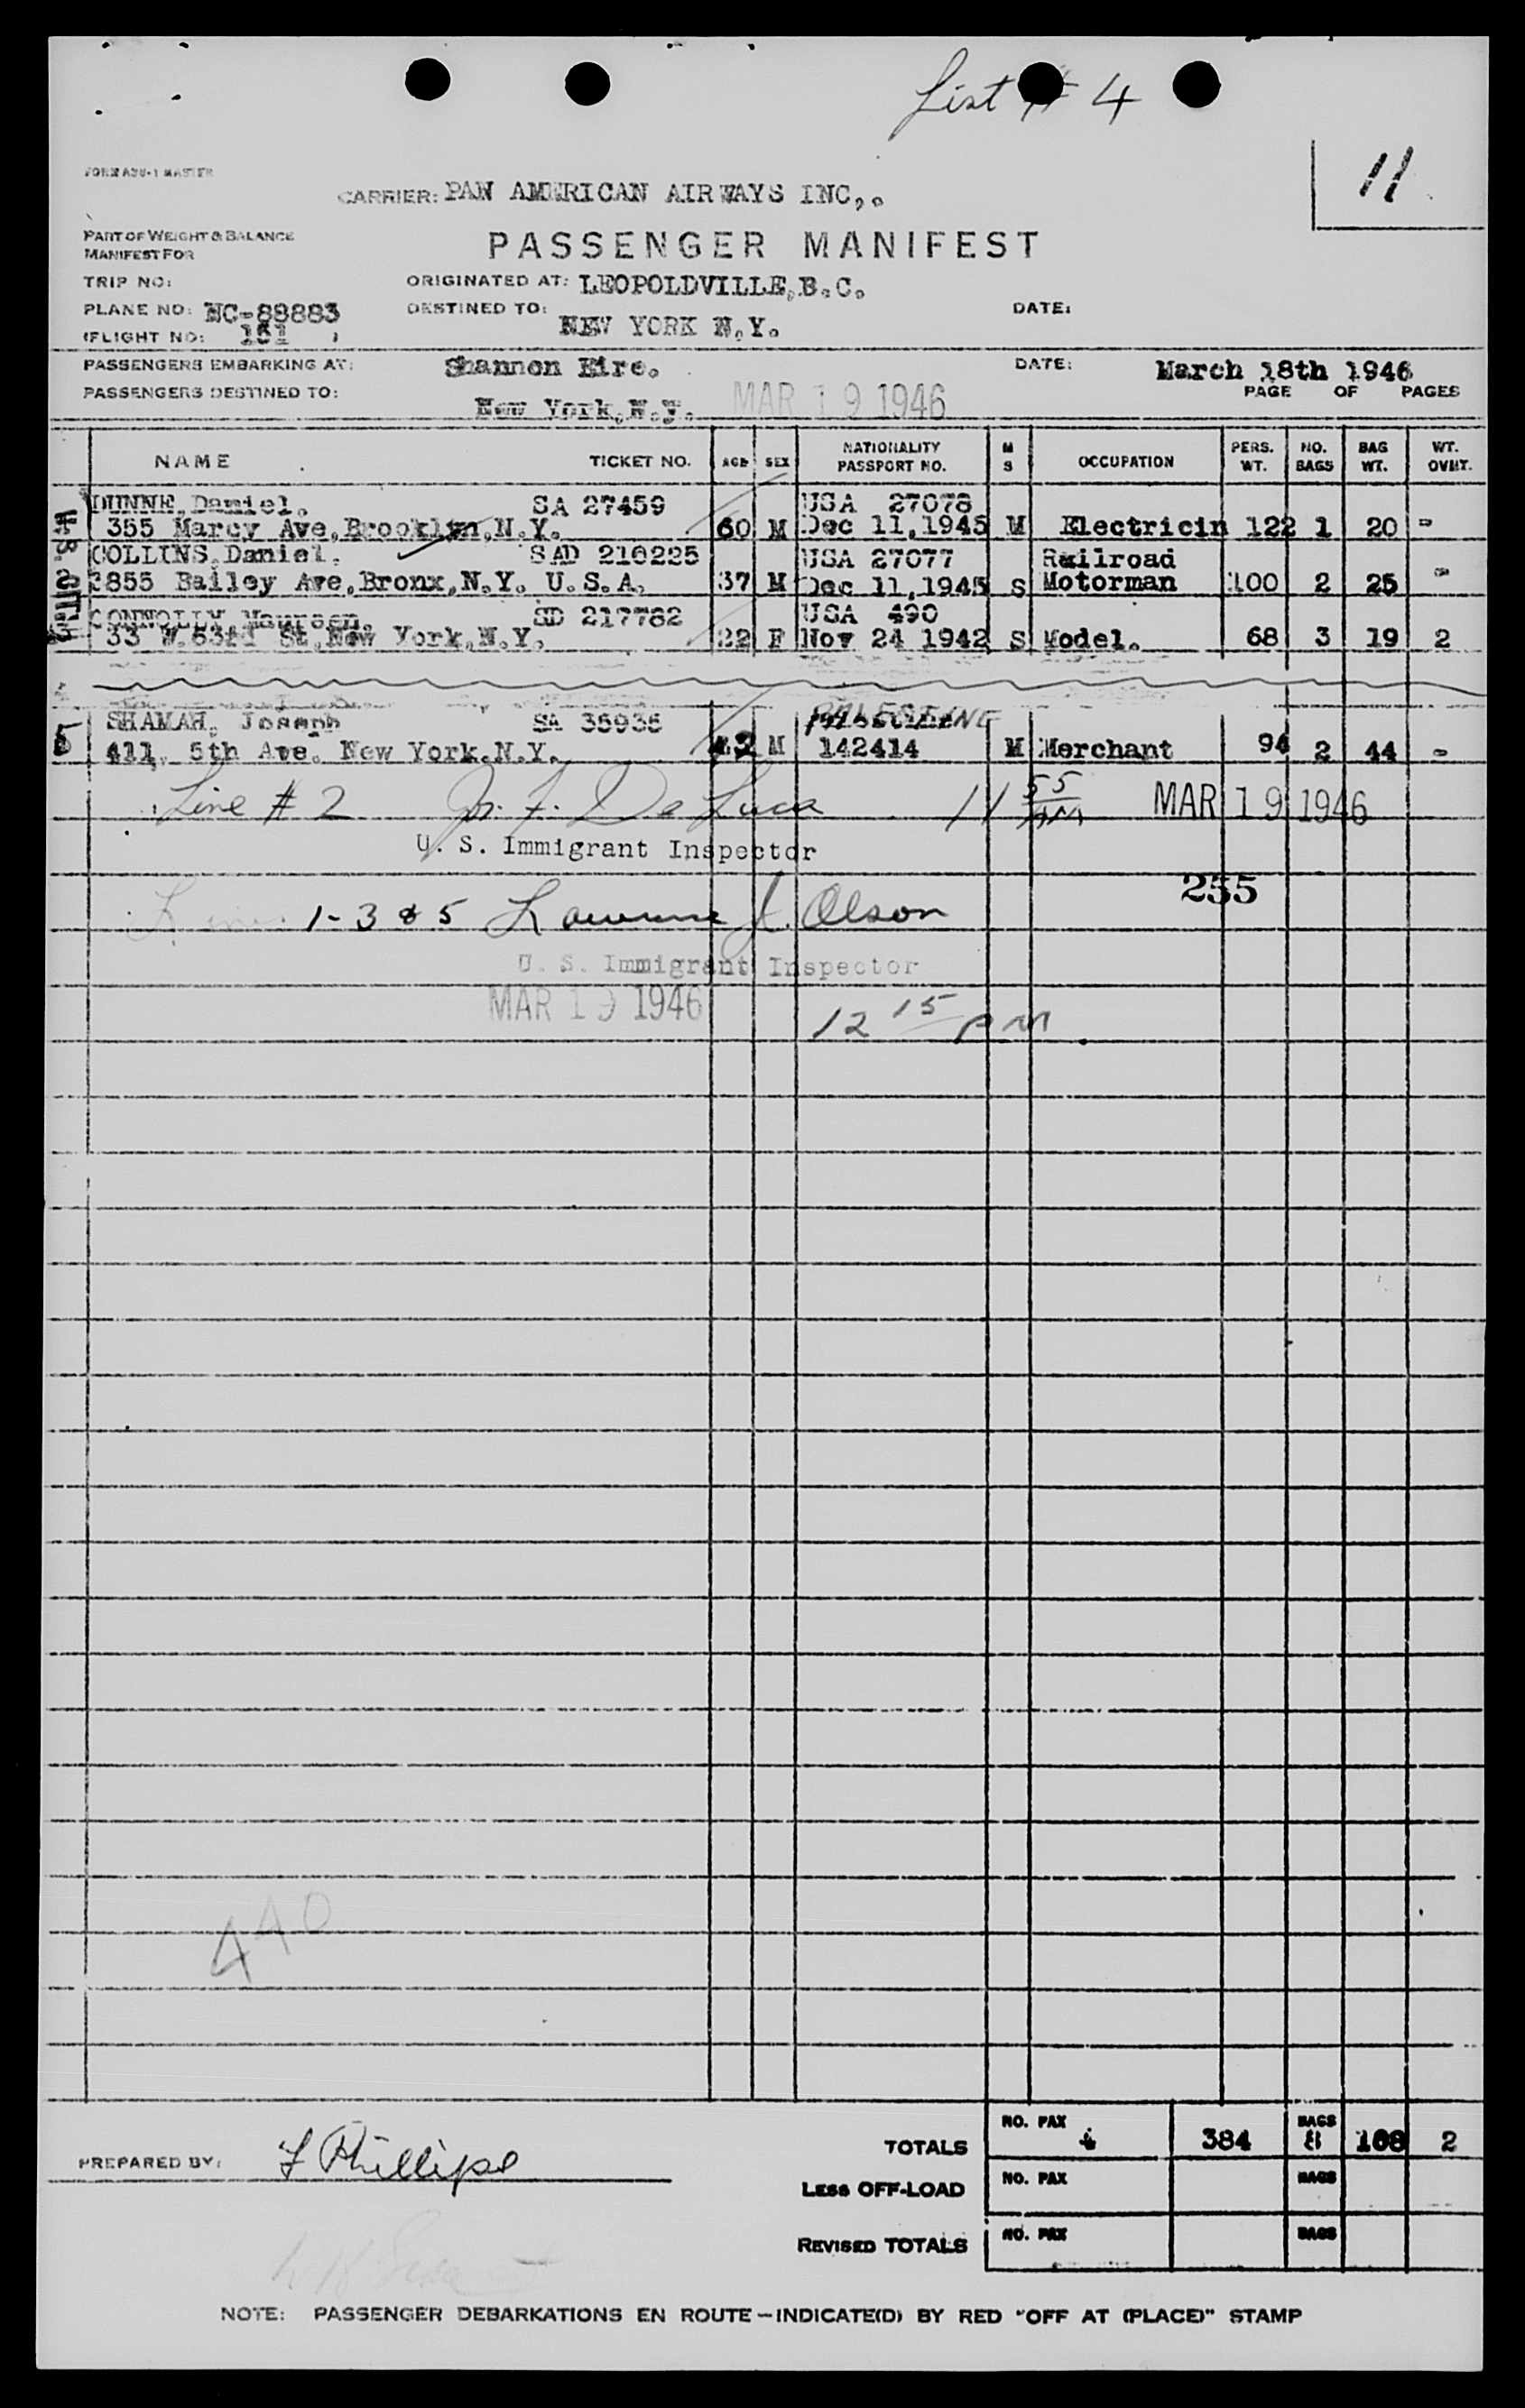 List # 4
11
FORM ASU-1 MASTER
CARRIER: PAN AMERICAN AIRWAYS INC,.
PART OF WEIGHT & BALANCE
MANIFEST FOR
PASSENGER MANIFEST
TRIP NO:
ORIGINATED AT: LEOPOLDVILLE, B.C.
PLANE NO: NC-88883
DESTINED TO: NEW YORK N.Y.
DATE:
(FLIGHT NO: 151 )
PASSENGERS EMBARKING AT: Shannon Eire.
DATE: March 18th 1946
PASSENGERS DESTINED TO: New York, N.Y. MAR 19 1946
PAGE OF PAGES
NAME TICKET NO. AGE SEX NATIONALITY PASSPORT NO. M S OCCUPATION PERS. WT. NO. BAGS BAG WT. WT. OVHT.
DUNNE, Daniel. SA 27459 USA 27078
355 Marcy Ave, Brooklyn, N.Y. 60 M Dec 11, 1945 M Electricin 122 1 20 -
COLLINS, Daniel. SAD 216225 USA 27077 Railroad
3855 Bailey Ave, Bronx, N.Y. U.S.A. 37 M Dec 11, 1945 S Motorman 100 2 25 -
CONNOLLY, Maureen. SD 217782 USA 490
33 W. 63rd St, New York, N.Y. 22 F Nov 24 1942 S Model. 68 3 19 2
SHAMAH, Joseph SA 35935 PALESTINE
5 411, 5th Ave. New York, N.Y. M 142414 M Merchant 94 2 44 -
Line # 2 De Luca 11 55 AM MAR 19 1946
U. S. Immigrant Inspector
255
Lines 1-3 & 5 Lawrence J. Olson
U. S. Immigrant Inspector
MAR 19 1946
12 15 PM
440
PREPARED BY: F Phillips
TOTALS NO. PAX 4 384 BAGS 8 108 2
LESS OFF-LOAD NO. PAX BAGS
REVISED TOTALS NO. PAX BAGS
NOTE: PASSENGER DEBARKATIONS EN ROUTE—INDICATE(D) BY RED "OFF AT (PLACE)" STAMP